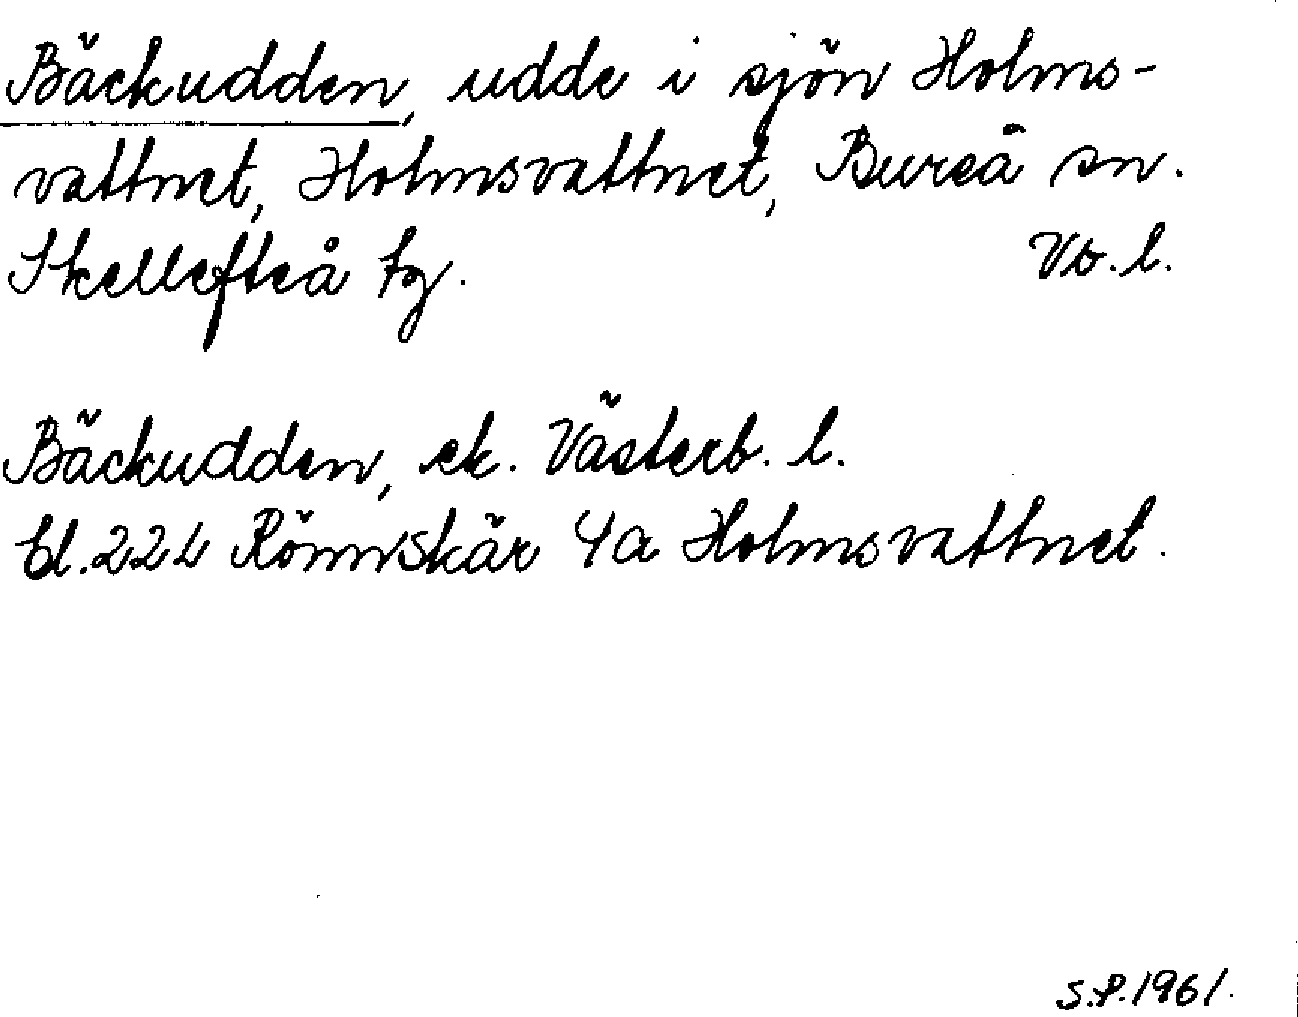 Bäckudden, udde i sjön Holms-
vattnet, Holmsvattnet, Bureå sn.
Skellefteå tg. Vb. l.
Bäckudden, ek. Västerb. l.
bl. 22L Rönnskär 4a Holmsvattnet.
S.P. 1961.